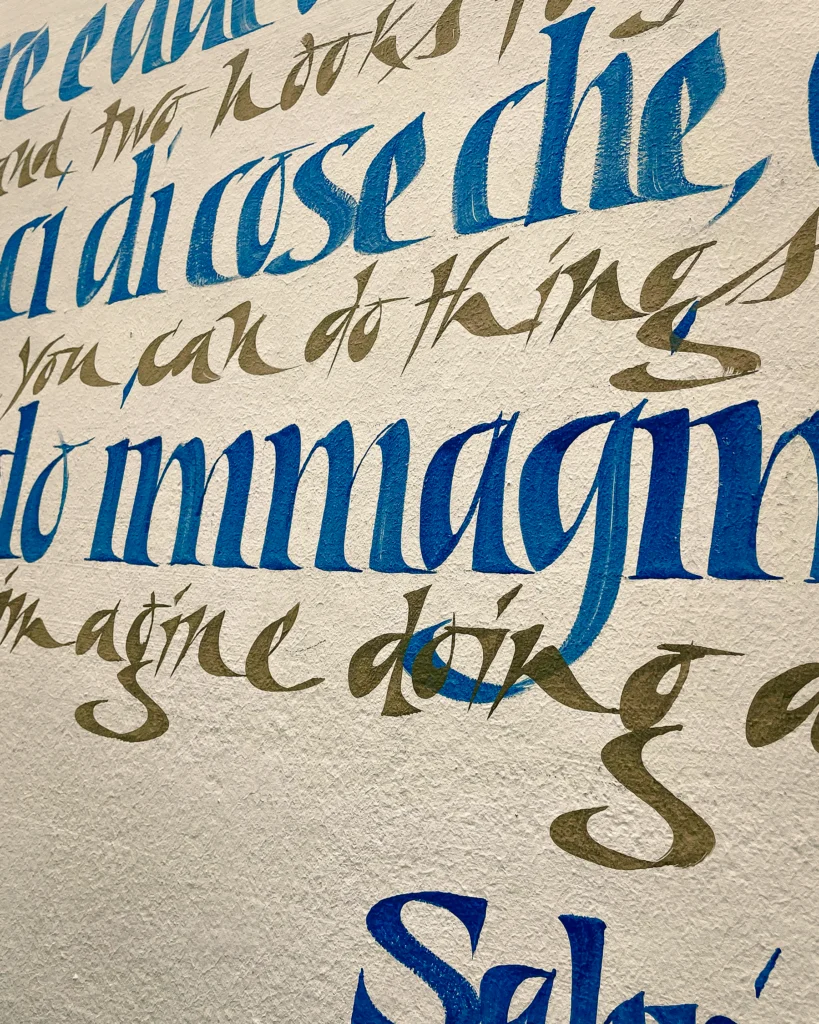 re e due
and two hooks
ci di cose che,
you can do things
do immagin
imagine doing a